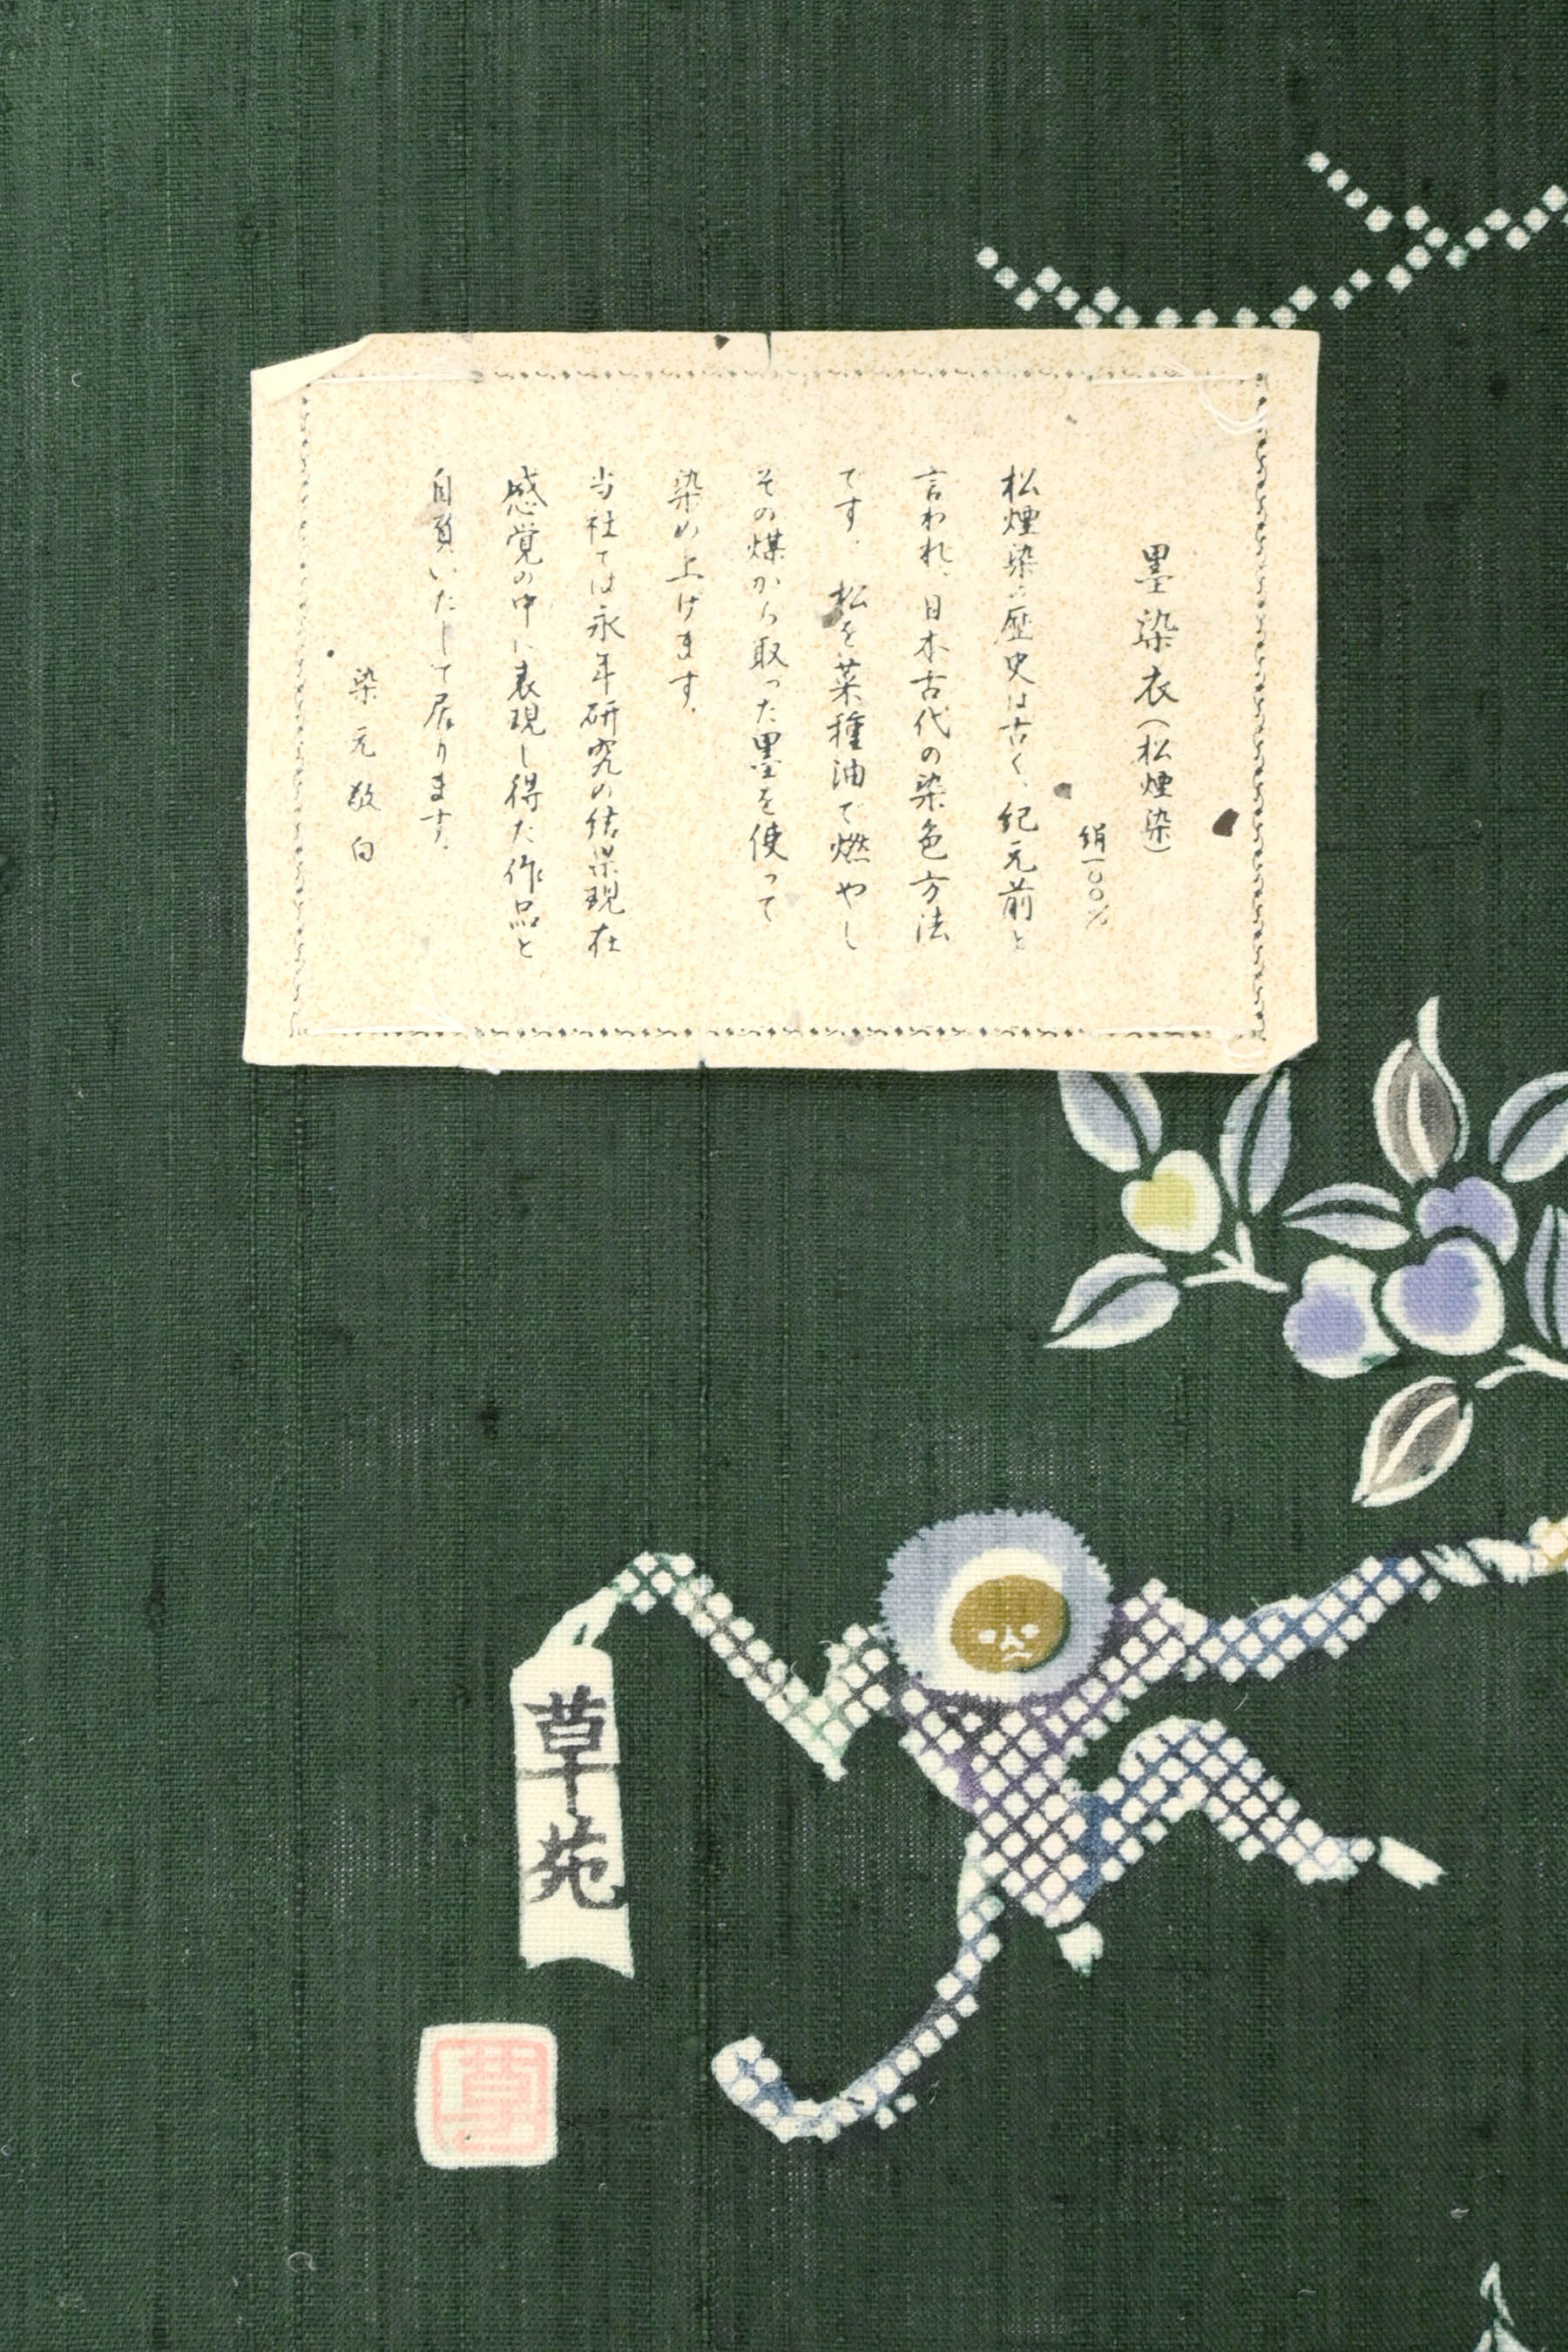 墨染衣(松煙染)
絹一〇〇%
松煙染の歴史は古く、紀元前と
言われ、日本古代の染色方法
です。松を菜種油で燃やし
その煤から取った墨を使って
染め上げます。
当社では永年研究の結果現在
感覚の中に表現し得た作品と
自負いたして居ります。
染元敬白
草苑
草